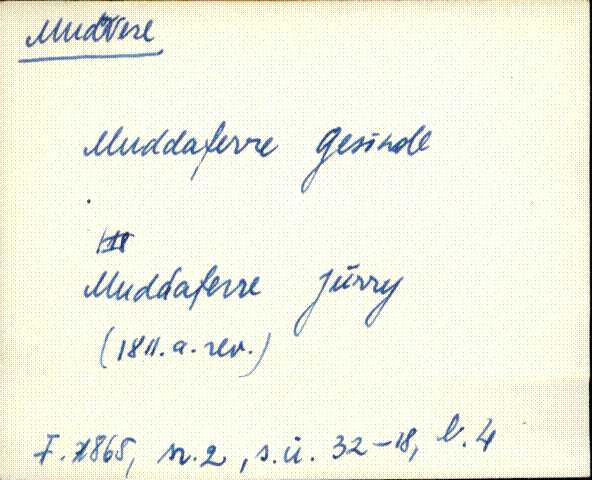 Mudvere
Muddaferre Gesinde
Muddaferre Jürry
(1811.a. rev.)
F. 1865, nr. 2, s.ü. 32-18, l. 4